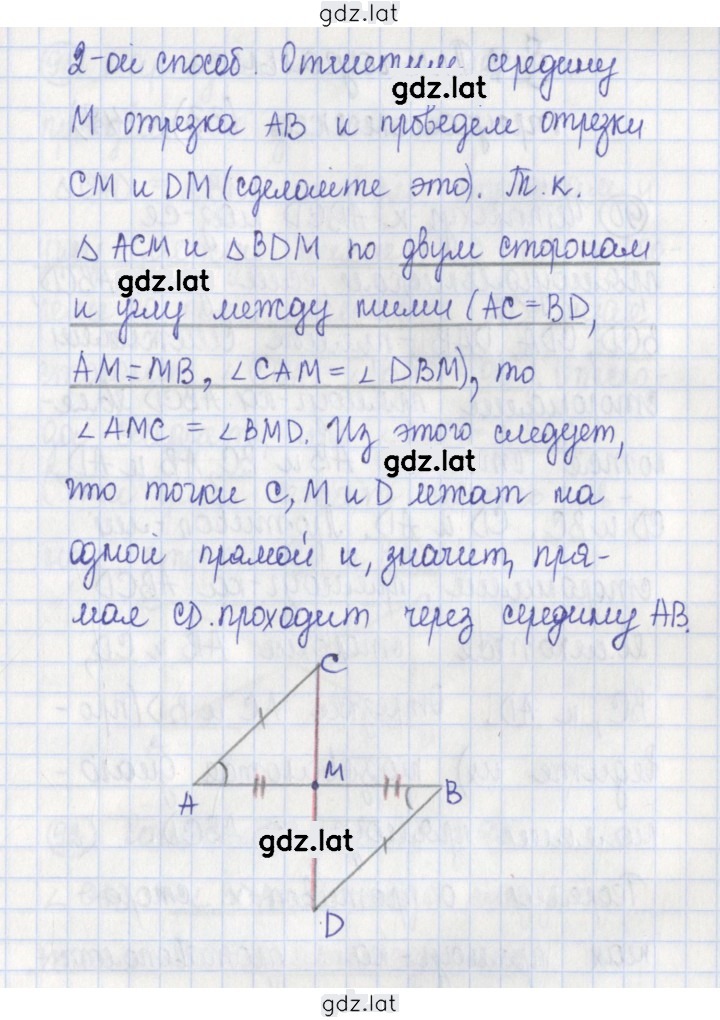 gdz.lat
2-ой способ. Отметим середину
gdz.lat
М отрезка АВ и проведем отрезки
СМ и DM (сделайте это). Т.к.
△ АСМ и △ BDM по двум сторонам
gdz.lat
и углу между ними (AC=BD,
AM=MB, ∠CAM = ∠ DBM), то
∠AMC = ∠BMD. Из этого следует,
gdz.lat
что точки С, М и D лежат на
одной прямой и, значит, пря-
мая CD проходит через середину АВ.
C
M
A
B
gdz.lat
D
gdz.lat